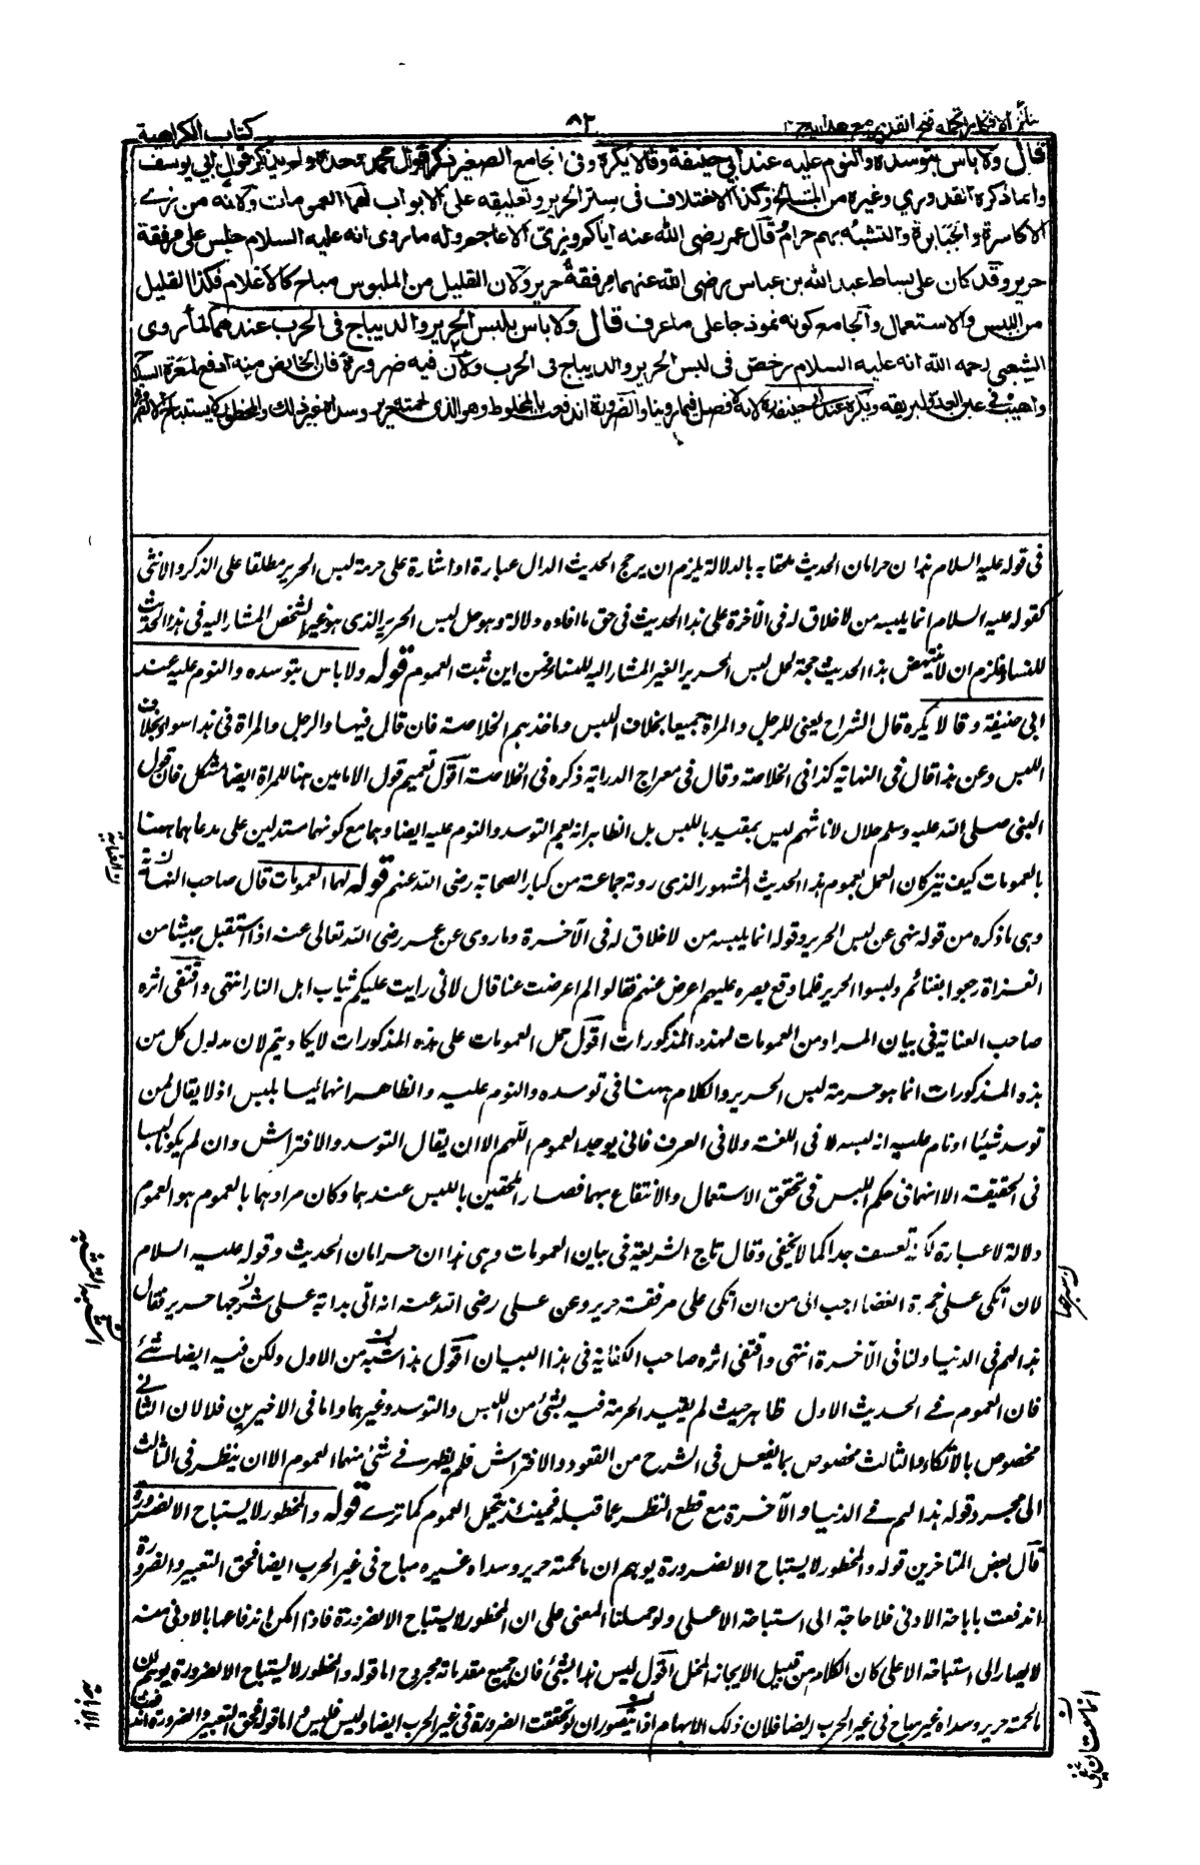 نتائج الافكار تكملة فتح القدير مع هداية ج ٤
٨٢
كتاب الكراهية
قال ولا باس بتوسده والنوم عليه عند ابي حنيفة وقالا يكره وفي الجامع الصغير ذكر قول محمد وحده ولم يذكر قول ابي يوسف
وانما ذكره القدوري وغيره من المشايخ وكذا الاختلاف في ستر الحرير وتعليقه على الابواب لهما العمومات ولانه من زي
الاكاسرة والجبابرة والتشبه بهم حرام قال عمر رضي الله عنه اياكم وزيّ الاعاجم وله ما روى انه عليه السلام جلس على مرفقة
حرير وقد كان على بساط عبد الله بن عباس رضي الله عنهما مرفقة حرير ولان القليل من الملبوس مباح كالاعلام فكذا القليل
من اللبس والاستعمال والجامع كونه نموذجا على ما عرف قال ولا باس بلبس الحرير والديباج في الحرب عندهما لما روى
الشعبي رحمه الله انه عليه السلام رخص في لبس الحرير والديباج في الحرب ولان فيه ضرورة فان الخالص منه ادفع لمعرة السلاح
واهيب في عين العدو لبريقه ويكره عند ابي حنيفة لانه لا فصل فيما روينا والضرورة اندفعت بالمخلوط وهو الذي لحمته حرير وسداه غير ذلك والمحظور لا يستباح الا لضرورة
في قوله عليه السلام هذان حرامان الحديث ملحقا به بالدلالة يلزم ان يرجح الحديث الدال عبارة او اشارة على حرمة لبس الحرير مطلقا على الذكر والانثى
كقوله عليه السلام انما يلبسه من لا خلاق له في الآخرة على هذا الحديث في حق ما افاده دلالة وهو حل لبس الحرير الذي هو غير الشخص المشار اليه في هذا الحديث
للنساء فلزم ان لا ينتهض هذا الحديث حجة لحل لبس الحرير الغير المشار اليه للنساء فمن اين ثبت العموم قوله ولا باس بتوسده والنوم عليه عند
ابي حنيفة وقالا يكره قال الشراح يعني للرجل والمراة جميعا بخلاف اللبس وماخذهم الخلاصة فان قال فيها والرجل والمراة في هذا سواء بخلاف
اللبس وعن هذا قال في النهاية كذا في الخلاصة وقال في معراج الدراية ذكره في الخلاصة اقول تعميم قول الامامين هنا للمراة ايضا مشكل فان قول
النبي صلى الله عليه وسلم حلال لاناثهم ليس بمقيد باللبس بل الظاهر انه يعم التوسد والنوم عليه ايضا وهما مع كونهما مستدلين على مدعاهما ههنا
بالعمومات كيف يتركان العمل بعموم هذا الحديث المشهور الذي روته جماعة من كبار الصحابة رضي الله عنهم قوله لهما العمومات قال صاحب النهاية
وهي ما ذكره من قوله نهى عن لبس الحرير وقوله انما يلبسه من لا خلاق له في الآخرة وما روى عن عمر رضي الله تعالى عنه اذا استقبل جيشا من
الغزاة رجعوا بغنائم ولبسوا الحرير فلما وقع بصره عليهم اعرض عنهم فقالوا لم اعرضت عنا قال لاني رايت عليكم ثياب اهل النار انتهى واقتفى اثره
صاحب العناية في بيان المراد من العمومات لهذه المذكورات اقول حمل العمومات على هذه المذكورات لا يكاد يتم لان مدلول كل من
هذه المذكورات انما هو حرمة لبس الحرير والكلام ههنا في توسده والنوم عليه والظاهر انهما ليسا بلبس اذ لا يقال لمن
توسد شيئا او نام عليه انه لبسه لا في اللغة ولا في العرف فانى يوجد العموم اللهم الا ان يقال التوسد والافتراش وان لم يكونا لبسا
في الحقيقة الا انهما في حكم اللبس في تحقق الاستعمال والانتفاع بهما فصارا ملحقين باللبس عندهما وكان مرادهما بالعموم هو العموم
دلالة لا عبارة لكنه تعسف جدا كما لا يخفى وقال تاج الشريعة في بيان العمومات وهي هذان حرامان الحديث وقوله عليه السلام
لان اتكى على جمرة الغضا احب الى من ان اتكى على مرفقة حرير وعن علي رضي الله عنه انه اتى بدابة على سرجها حرير فقال
هذا لهم في الدنيا ولنا في الآخرة انتهى واقتفى اثره صاحب الكفاية في هذا البيان اقول هذا اشبه من الاول ولكن فيه ايضا شئ
فان العموم في الحديث الاول ظاهر حيث لم يقيد الحرمة فيه بشئ من اللبس والتوسد وغيرهما واما في الاخيرين فلا لان الثاني
مخصوص بالاتكاء والثالث مخصوص بما يفعل في السرج من القعود والافتراش فلم يظهر في شئ منهما العموم الا ان ينظر في الثالث
الى مجرد قوله هذا لهم في الدنيا والآخرة مع قطع النظر عما قبله فحينئذ يحتمل العموم كما ترى قوله والمحظور لا يستباح الا لضرورة
قال بعض المتاخرين قوله والمحظور لا يستباح الا لضرورة يوهم ان ما لحمته حرير وسداه غيره مباح في غير الحرب ايضا فحق التعبير والضرورة
اندفعت باباحة الادنى فلا حاجة الى استباحة الاعلى ولو حملنا المعنى على ان المحظور لا يستباح الا لضرورة فاذا امكن اندفاعها بالادنى منه
لا يصار الى استباحة الاعلى كان الكلام من قبيل الايجاز المخل اقول ليس هذا بشئ فان جميع مقدماته مجروح اما قوله والمحظور لا يستباح الا لضرورة يوهم ان
ما لحمته حرير وسداه غيره مباح في غير الحرب ايضا فلان ذلك الايهام انما يتصور ان لو تحققت الضرورة في غير الحرب ايضا وليس فليس واما قوله فحق التعبير والضرورة اند